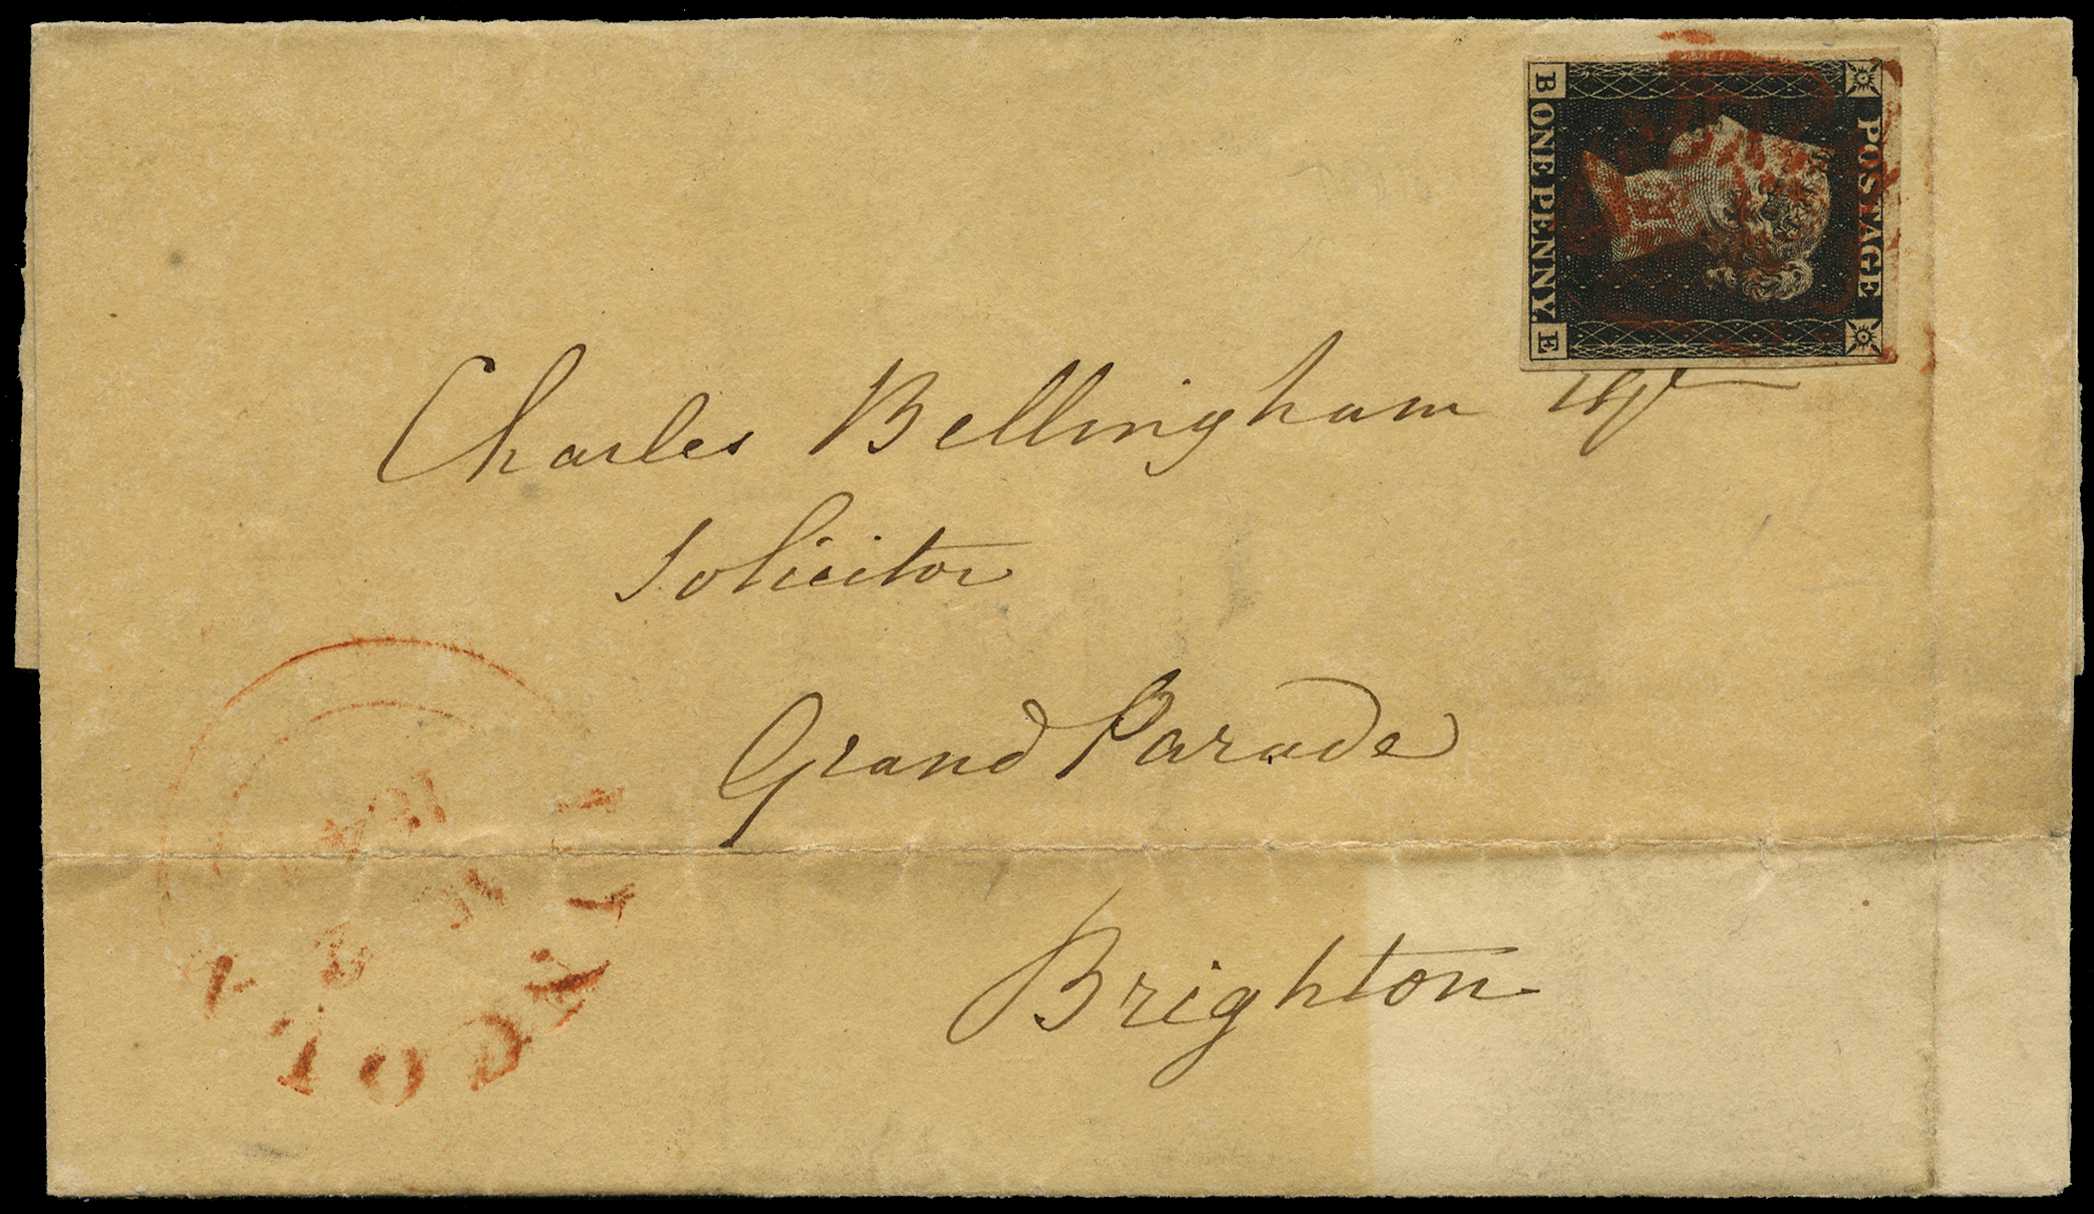 POSTAGE
B ONE PENNY. E
Charles Bellingham Esqr
Solicitor
Grand Parade
Brighton